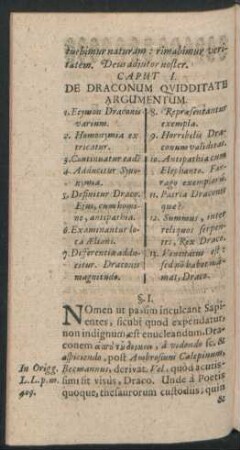 turbimur naturam: rimabimur veri-
tatem. Deus adjutor noster.
CAPUT I.
DE DRACONUM QVIDDITATE
ARGUMENTUM
1. Etymon Draconis
varium.
2. Homonymia ex
tricatur.
3. Continuatur
4. Adducitur Syno-
nymia.
5. Definitur Draco.
Ejus, cum homi-
ne, antipathia.
6. Examinantur lo-
ca Aeliani.
7. Differentia addu-
citur. Draconis
magnitudo.
8. Repraesentantur
exempla.
9. Horribilis Dra-
conum validitas.
10. Antipathia cum
Elephante. Far-
rago exemplorum
11. Patria Draconis
quae?
12. Summus, inter
reliquos serpen-
tes, Rex Draco.
13. Venenatus est
sed non ubique
mal, Draco.
§. I.
NOmen ut passim inculcant Sapi-
entes, sicubi quod expendatur,
non indignum, est enucleandum. Dra-
conem à videndo sc. &
aspiciendo, post Ambrosium Calepinum,
Becmannus, derivat. Vel, quod acutis-
simi sit visus, Draco. Unde à Poetis
quoque, thesaurorum custodiis, quin
&
In Origg.
L. L. p. m.
409.